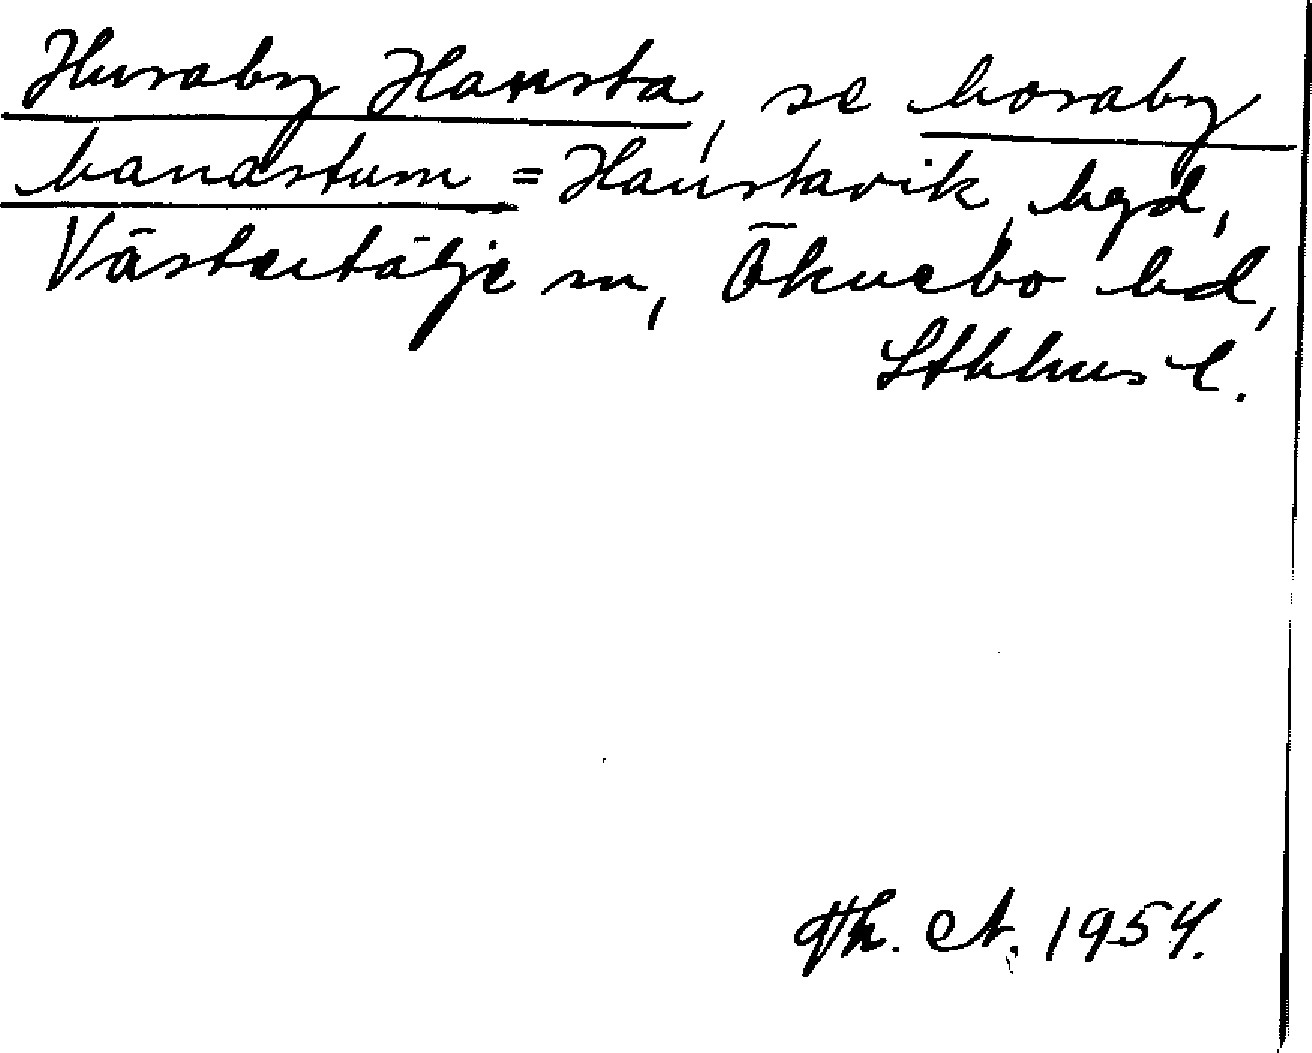 Huraby Hansta, se horaby
hanastum = Haustavik, hgd,
Västertälje sn, Öknebo hd,
Sthlms l.
Th. A. 1954.